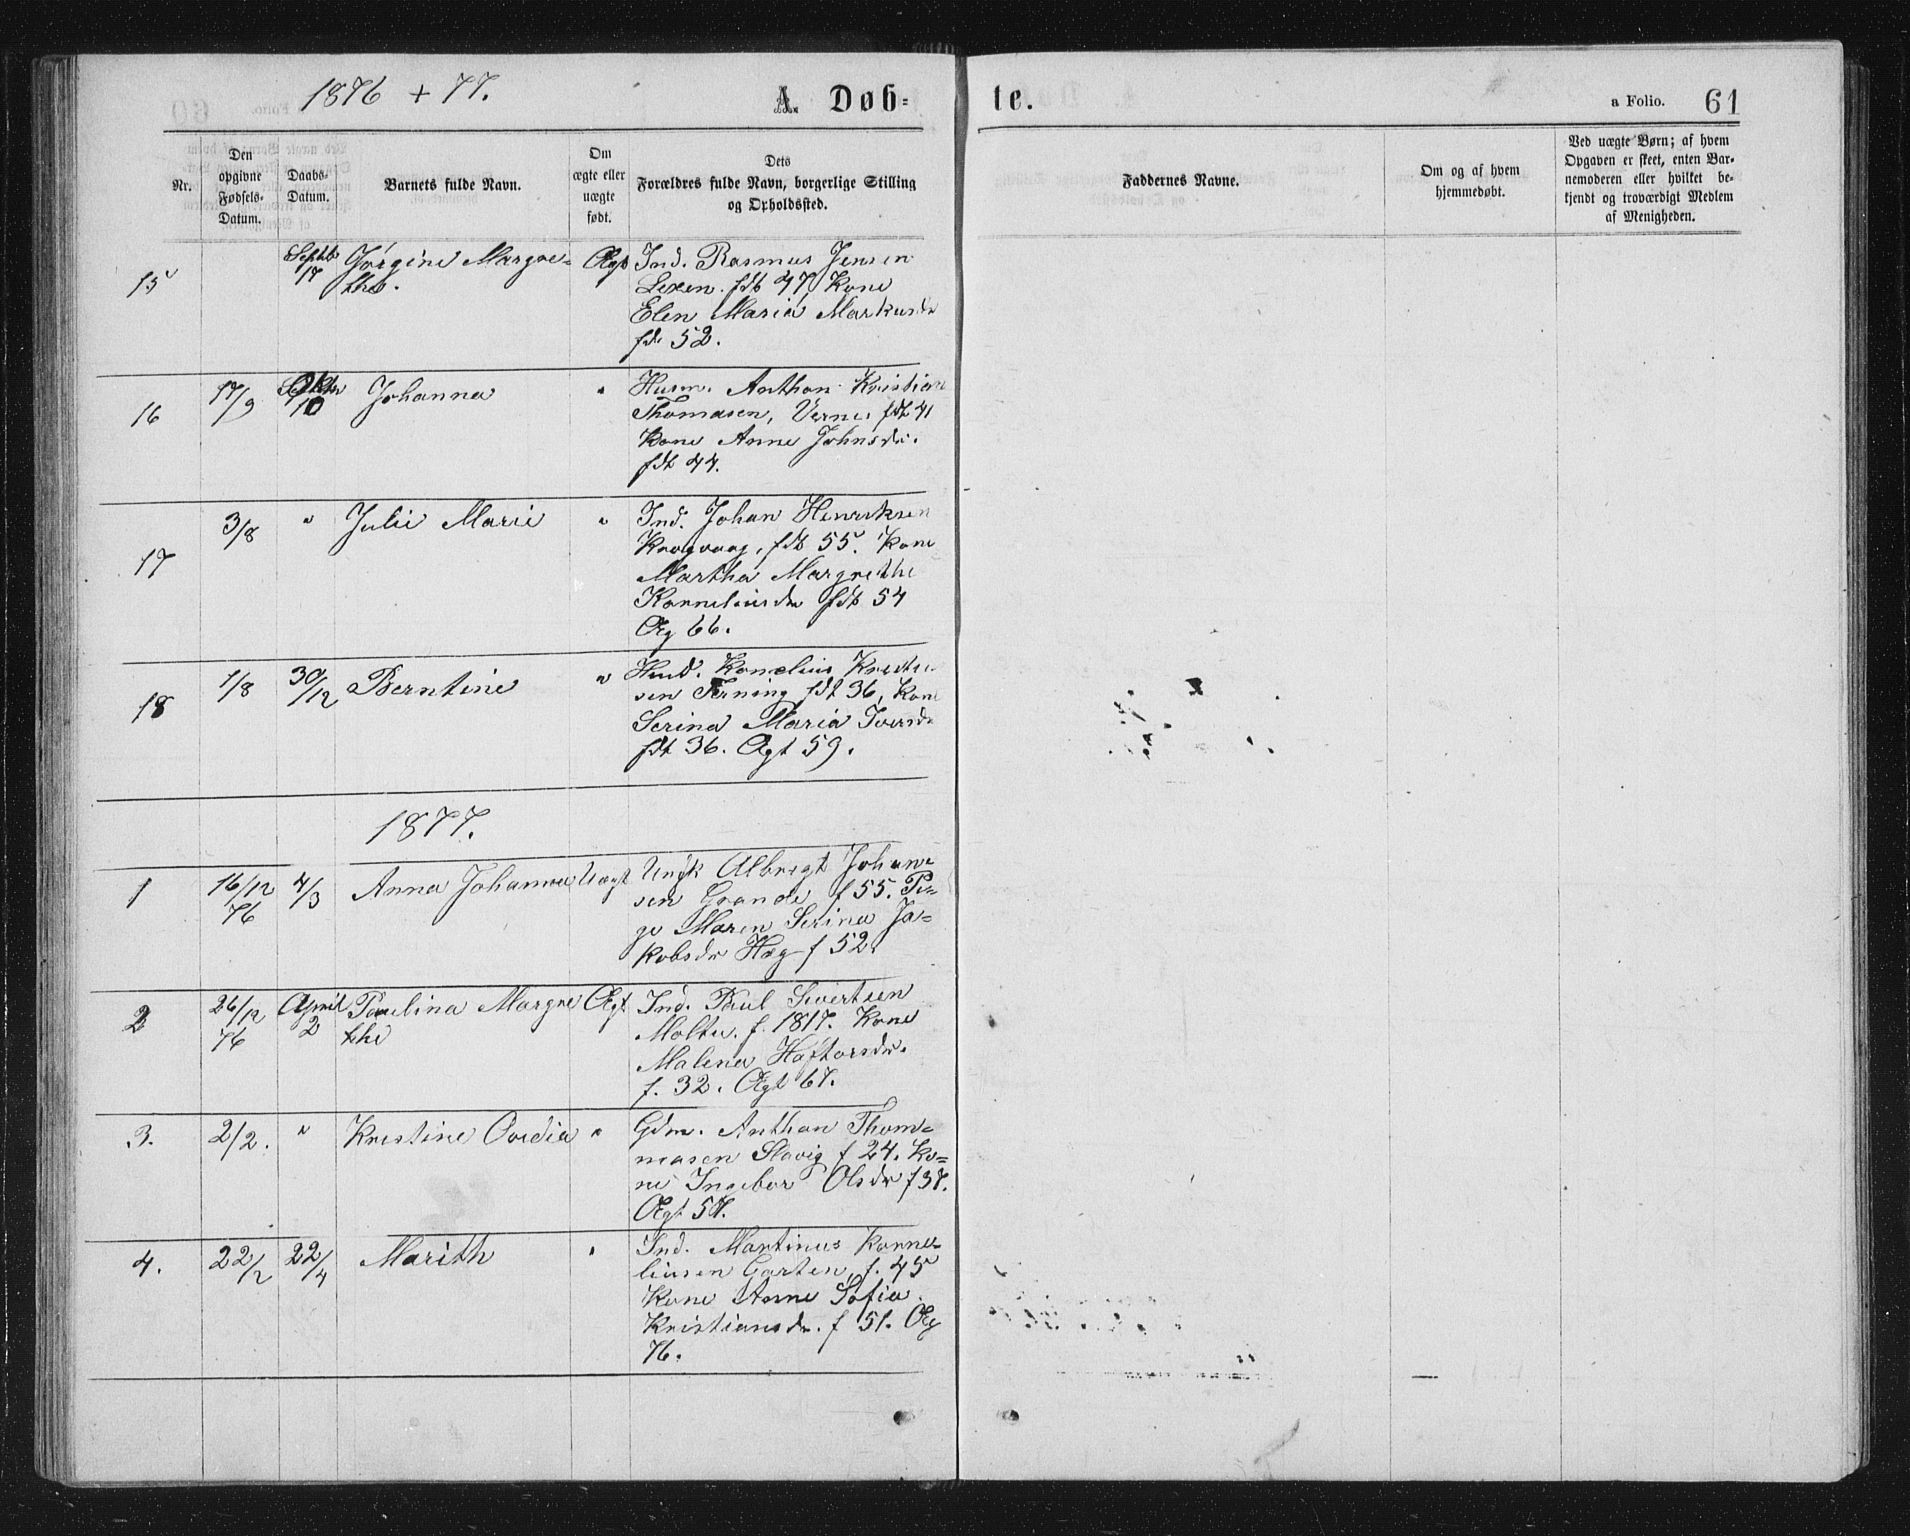 1876 + 77.
A. Døb-
te.
a Folio.
61
Nr.
Den
opgivne
Fødsels-
Datum.
Daabs-
Datum.
Barnets fulde Navn.
Om
ægte eller
uægte
født.
Dets
Forældres fulde Navn, borgerlige Stilling
og Opholdssted.
Faddernes Navne.
Om og af hvem
hjemmedøbt.
Ved uægte Børn; af hvem
Opgaven er skeet, enten Bar-
nemoderen eller hvilket be-
kjendt og troværdigt Medlem
af Menigheden.
15
Septb
17
Jørgine Margre-
the.
Ægt
Ind. Rasmus Jensen
Lexen. fdt 47, Kone
Elen Maria Markusdr
fdt 52.
16
17/9
Oktbr
10
Johanna
"
Husm. Anthon Kristian
Thomasen, Vernes fdt 41
Kone Anne Johnsdr.
fdt 44.
17
3/8
"
Julie Marie
"
Ind. Johan Henriksen
Krogvaag, fdt 55. Kone
Martha Margrethe
Korneliusdr fdt 54
Æg 66.
18
1/8
30/12
Berntine
"
Kornelius Krist
sen Terning fdt 36, Kone
Serina Maria Iversdr
fdt 36. Ægt 59.
1877.
1
16/12
76
4/3
Anna Johanna
Uægt
Ungk Albregt Johan-
sen Grande f 55. Pi-
ge Maren Serina Ja-
kobsdr Hæg f 52.
2
26/12
76
April
2
Paulina Margre
the
Ægt
Ind. Paul Sivertsen
Molte. f. 1817. Kone
Malena Haftorsdr.
f. 32. Ægt 67.
3.
2/2.
"
Kristine Ovedia
"
Gdm. Anthon Thom-
masen Slavig f 24. Ko-
ne Ingebor Olsdr f 37.
Ægt 57.
4.
22/2
22/4
Marith
"
Ind. Martinus Korne-
liusen Garten, f. 45
Kone Anne Sofia
Kristiansdr. f 51. Æg
76.